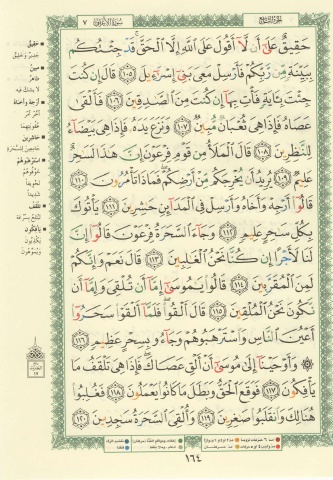 الجزء التاسع
سورة الأعراف ٧
حَقِيقٌ عَلَىٰٓ أَن لَّآ أَقُولَ عَلَى ٱللَّهِ إِلَّا ٱلْحَقَّ قَدْ جِئْتُكُم
بِبَيِّنَةٍ مِّن رَّبِّكُمْ فَأَرْسِلْ مَعِىَ بَنِىٓ إِسْرَٰٓءِيلَ ١٠٥ قَالَ إِن كُنتَ
جِئْتَ بِـَٔايَةٍ فَأْتِ بِهَآ إِن كُنتَ مِنَ ٱلصَّـٰدِقِينَ ١٠٦ فَأَلْقَىٰ
عَصَاهُ فَإِذَا هِىَ ثُعْبَانٌ مُّبِينٌ ١٠٧ وَنَزَعَ يَدَهُۥ فَإِذَا هِىَ بَيْضَآءُ
لِلنَّـٰظِرِينَ ١٠٨ قَالَ ٱلْمَلَأُ مِن قَوْمِ فِرْعَوْنَ إِنَّ هَـٰذَا لَسَـٰحِرٌ
عَلِيمٌ ١٠٩ يُرِيدُ أَن يُخْرِجَكُم مِّنْ أَرْضِكُمْ فَمَاذَا تَأْمُرُونَ ١١٠
قَالُوٓا۟ أَرْجِهْ وَأَخَاهُ وَأَرْسِلْ فِى ٱلْمَدَآئِنِ حَـٰشِرِينَ ١١١ يَأْتُوكَ
بِكُلِّ سَـٰحِرٍ عَلِيمٍ ١١٢ وَجَآءَ ٱلسَّحَرَةُ فِرْعَوْنَ قَالُوٓا۟ إِنَّ
لَنَا لَأَجْرًا إِن كُنَّا نَحْنُ ٱلْغَـٰلِبِينَ ١١٣ قَالَ نَعَمْ وَإِنَّكُمْ
لَمِنَ ٱلْمُقَرَّبِينَ ١١٤ قَالُوا۟ يَـٰمُوسَىٰٓ إِمَّآ أَن تُلْقِىَ وَإِمَّآ أَن
نَّكُونَ نَحْنُ ٱلْمُلْقِينَ ١١٥ قَالَ أَلْقُوا۟ فَلَمَّآ أَلْقَوْا۟ سَحَرُوٓا۟
أَعْيُنَ ٱلنَّاسِ وَٱسْتَرْهَبُوهُمْ وَجَآءُو بِسِحْرٍ عَظِيمٍ ١١٦
وَأَوْحَيْنَآ إِلَىٰ مُوسَىٰٓ أَنْ أَلْقِ عَصَاكَ فَإِذَا هِىَ تَلْقَفُ مَا
يَأْفِكُونَ ١١٧ فَوَقَعَ ٱلْحَقُّ وَبَطَلَ مَا كَانُوا۟ يَعْمَلُونَ ١١٨ فَغُلِبُوا۟
هُنَالِكَ وَٱنقَلَبُوا۟ صَـٰغِرِينَ ١١٩ وَأُلْقِىَ ٱلسَّحَرَةُ سَـٰجِدِينَ ١٢٠
حقيق
مبين
أرجه وأخاه
حاشرين
استرهبوهم
تلقف
يأفكون
١٦٤